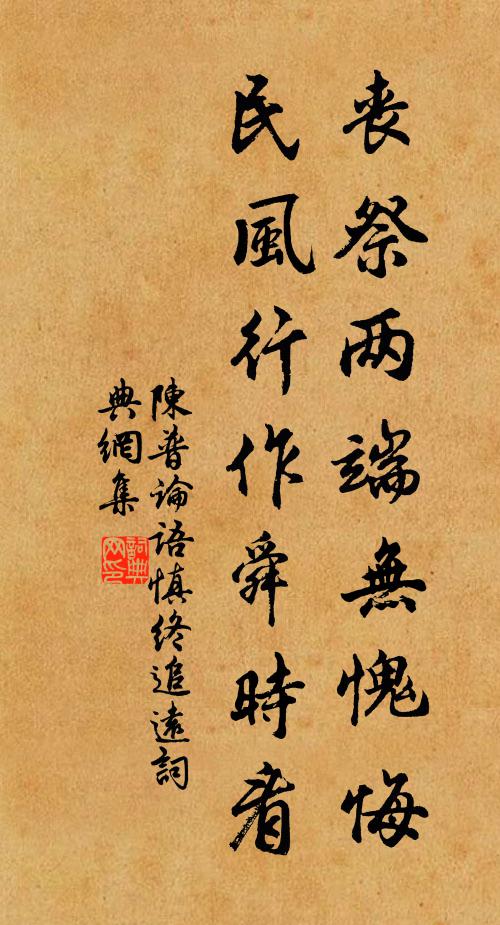 丧祭两端無愧悔
民風行作舜時看
陳普論語慎终追遠詞
典網集
詞典网印